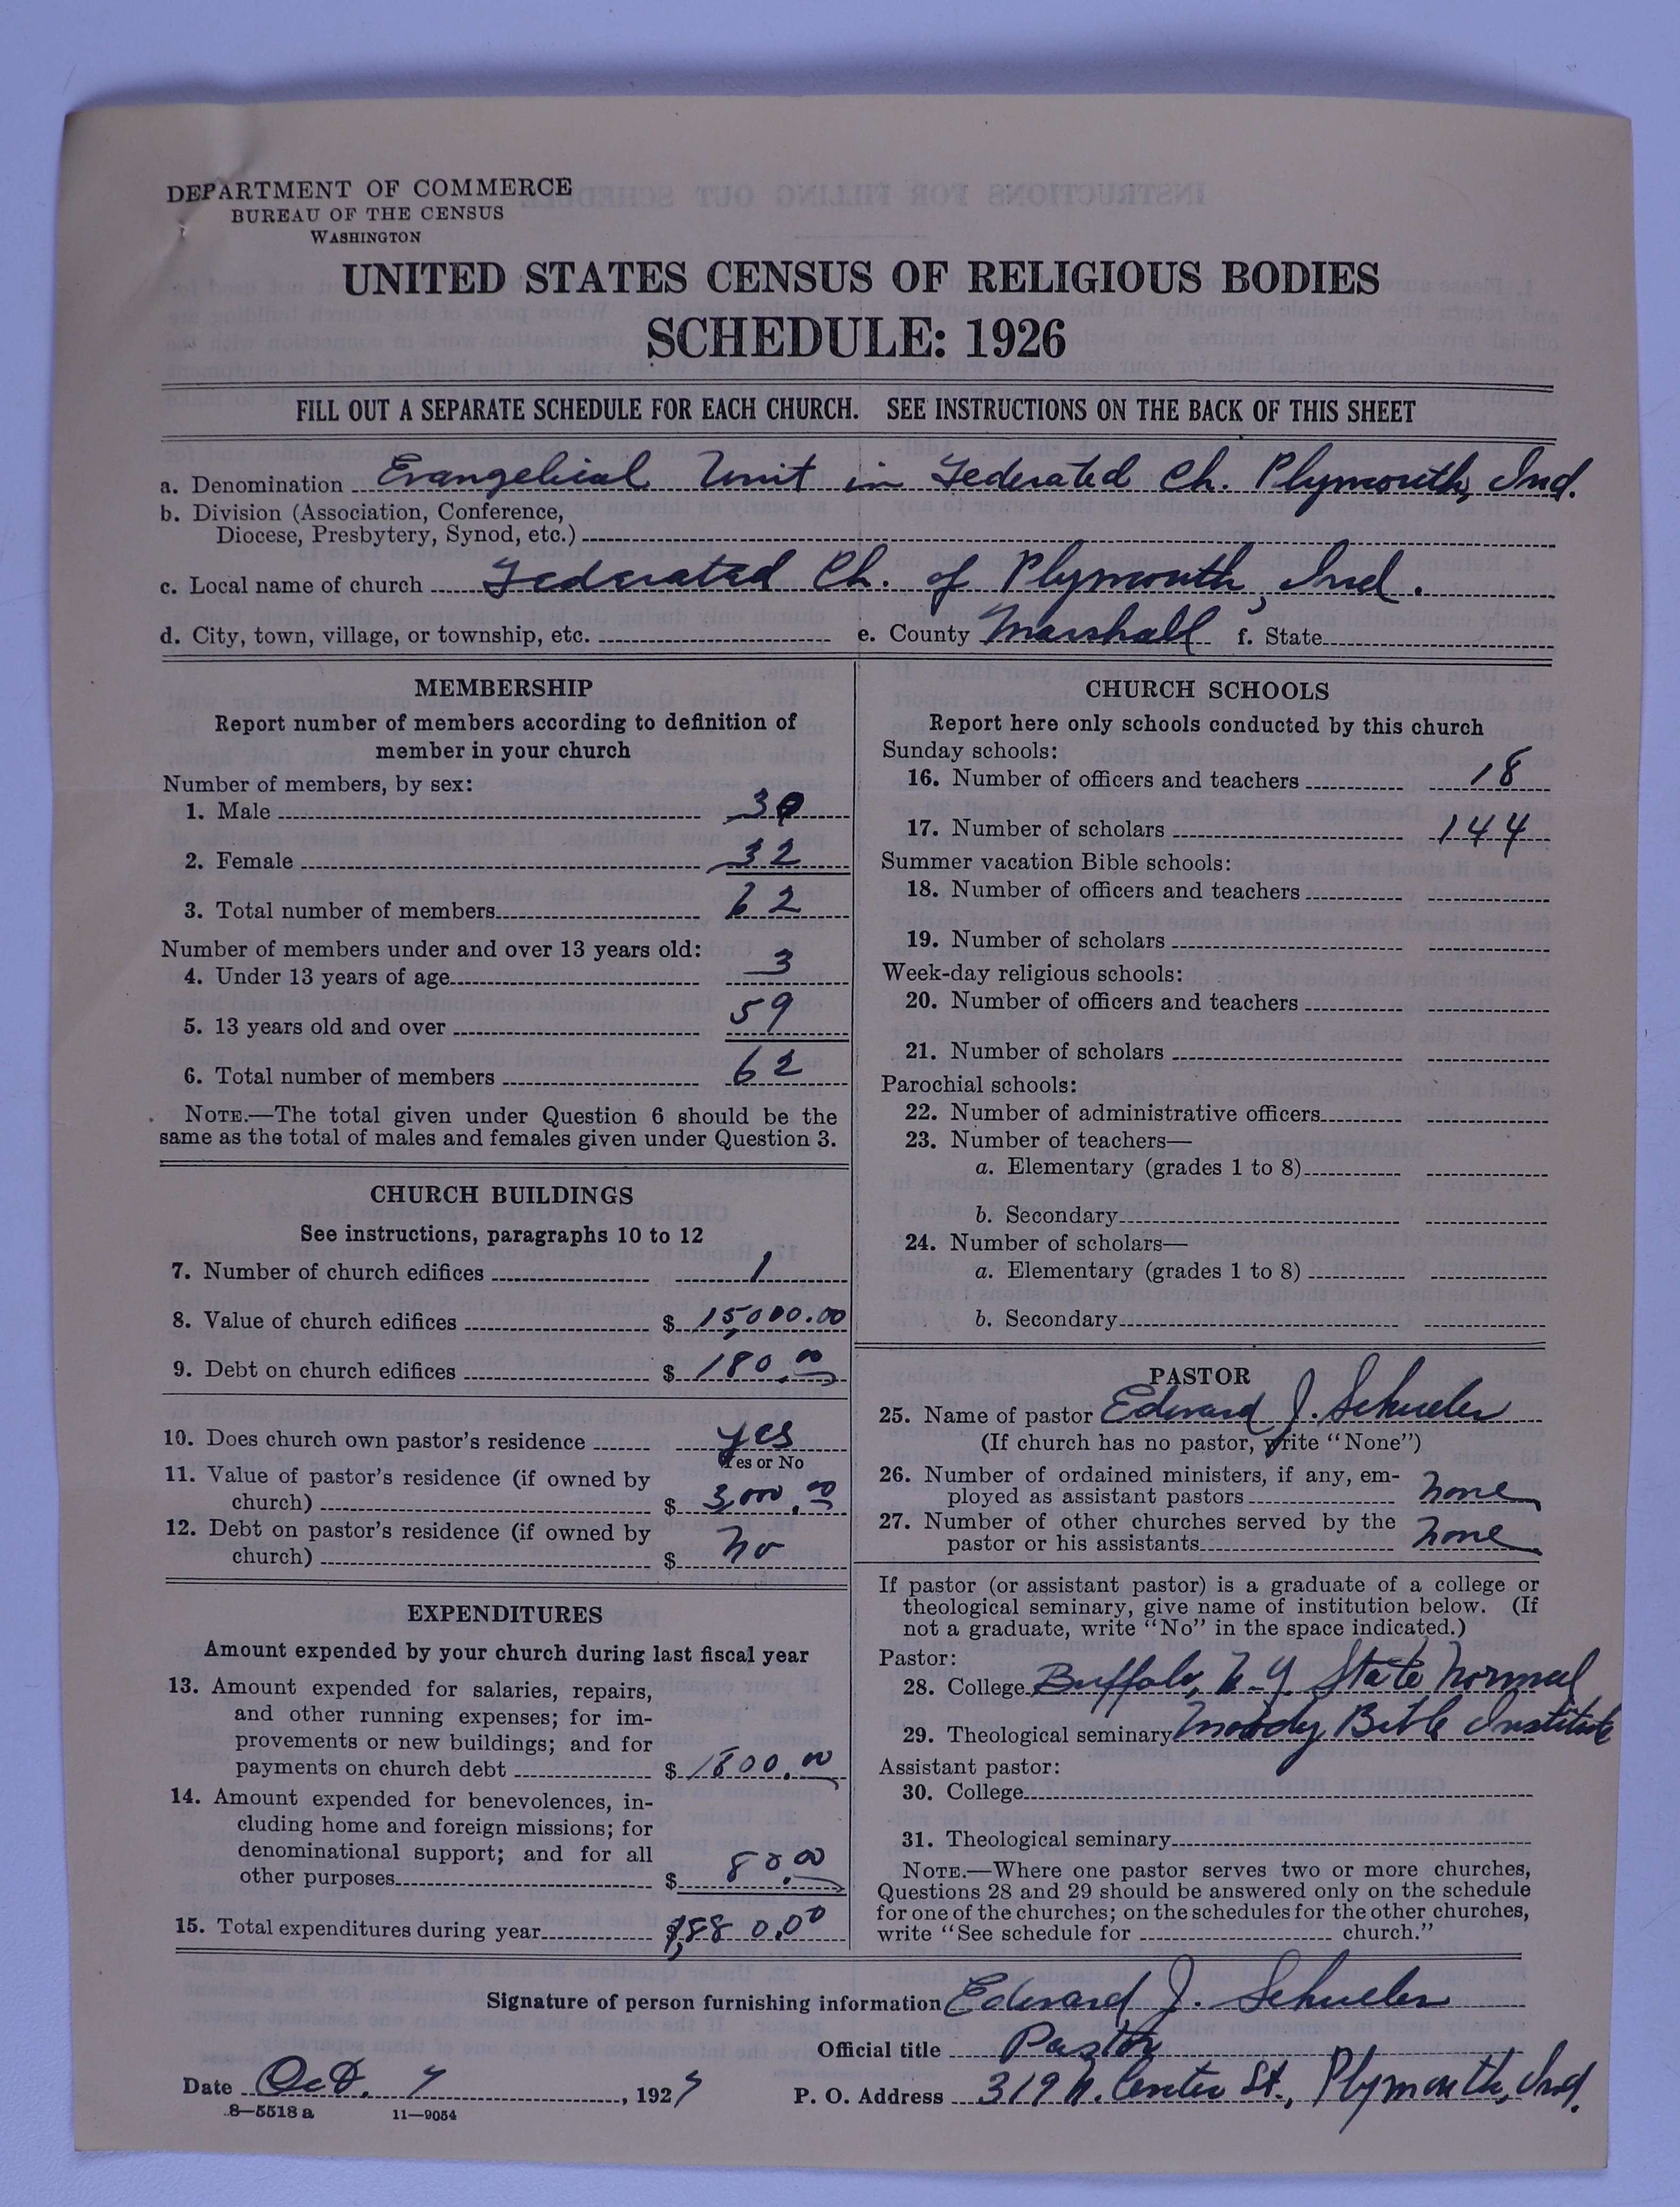 DEPARTMENT OF COMMERCE
BUREAU OF THE CENSUS
WASHINGTON
UNITED STATES CENSUS OF RELIGIOUS BODIES
SCHEDULE: 1926
FILL OUT A SEPARATE SCHEDULE FOR EACH CHURCH. SEE INSTRUCTIONS ON THE BACK OF THIS SHEET
a. Denomination Evangelical Unit in Federated Ch. Plymouth, Ind.
b. Division (Association, Conference,
Diocese, Presbytery, Synod, etc.)
c. Local name of church Federated Ch. of Plymouth, Ind.
d. City, town, village, or township, etc. e. County Marshall f. State
MEMBERSHIP
Report number of members according to definition of
member in your church
Number of members, by sex:
1. Male 30
2. Female 32
3. Total number of members 62
Number of members under and over 13 years old:
4. Under 13 years of age 3
5. 13 years old and over 59
6. Total number of members 62
NOTE.—The total given under Question 6 should be the
same as the total of males and females given under Question 3.
CHURCH BUILDINGS
See instructions, paragraphs 10 to 12
7. Number of church edifices 1
8. Value of church edifices $ 15,000.00
9. Debt on church edifices $ 180.00
10. Does church own pastor's residence yes
Yes or No
11. Value of pastor's residence (if owned by
church) $ 3,000.00
12. Debt on pastor's residence (if owned by
church) $ no
EXPENDITURES
Amount expended by your church during last fiscal year
13. Amount expended for salaries, repairs,
and other running expenses; for im-
provements or new buildings; and for
payments on church debt $ 1800.00
14. Amount expended for benevolences, in-
cluding home and foreign missions; for
denominational support; and for all
other purposes $ 80.00
15. Total expenditures during year $1,880.00
CHURCH SCHOOLS
Report here only schools conducted by this church
Sunday schools:
16. Number of officers and teachers 18
17. Number of scholars 144
Summer vacation Bible schools:
18. Number of officers and teachers
19. Number of scholars
Week-day religious schools:
20. Number of officers and teachers
21. Number of scholars
Parochial schools:
22. Number of administrative officers
23. Number of teachers—
a. Elementary (grades 1 to 8)
b. Secondary
24. Number of scholars—
a. Elementary (grades 1 to 8)
b. Secondary
PASTOR
25. Name of pastor Edward J. Schueler
(If church has no pastor, write "None")
26. Number of ordained ministers, if any, em-
ployed as assistant pastors none
27. Number of other churches served by the
pastor or his assistants none
If pastor (or assistant pastor) is a graduate of a college or
theological seminary, give name of institution below. (If
not a graduate, write "No" in the space indicated.)
Pastor:
28. College Buffalo, N.Y. State Normal
29. Theological seminary Moody Bible Institute
Assistant pastor:
30. College
31. Theological seminary
NOTE.—Where one pastor serves two or more churches,
Questions 28 and 29 should be answered only on the schedule
for one of the churches; on the schedules for the other churches,
write "See schedule for church."
Signature of person furnishing information Edward J. Schueler
Official title Pastor
Date Oct. 7, 1927 P. O. Address 319 N. Center St., Plymouth, Ind.
8—5518 a 11—9054